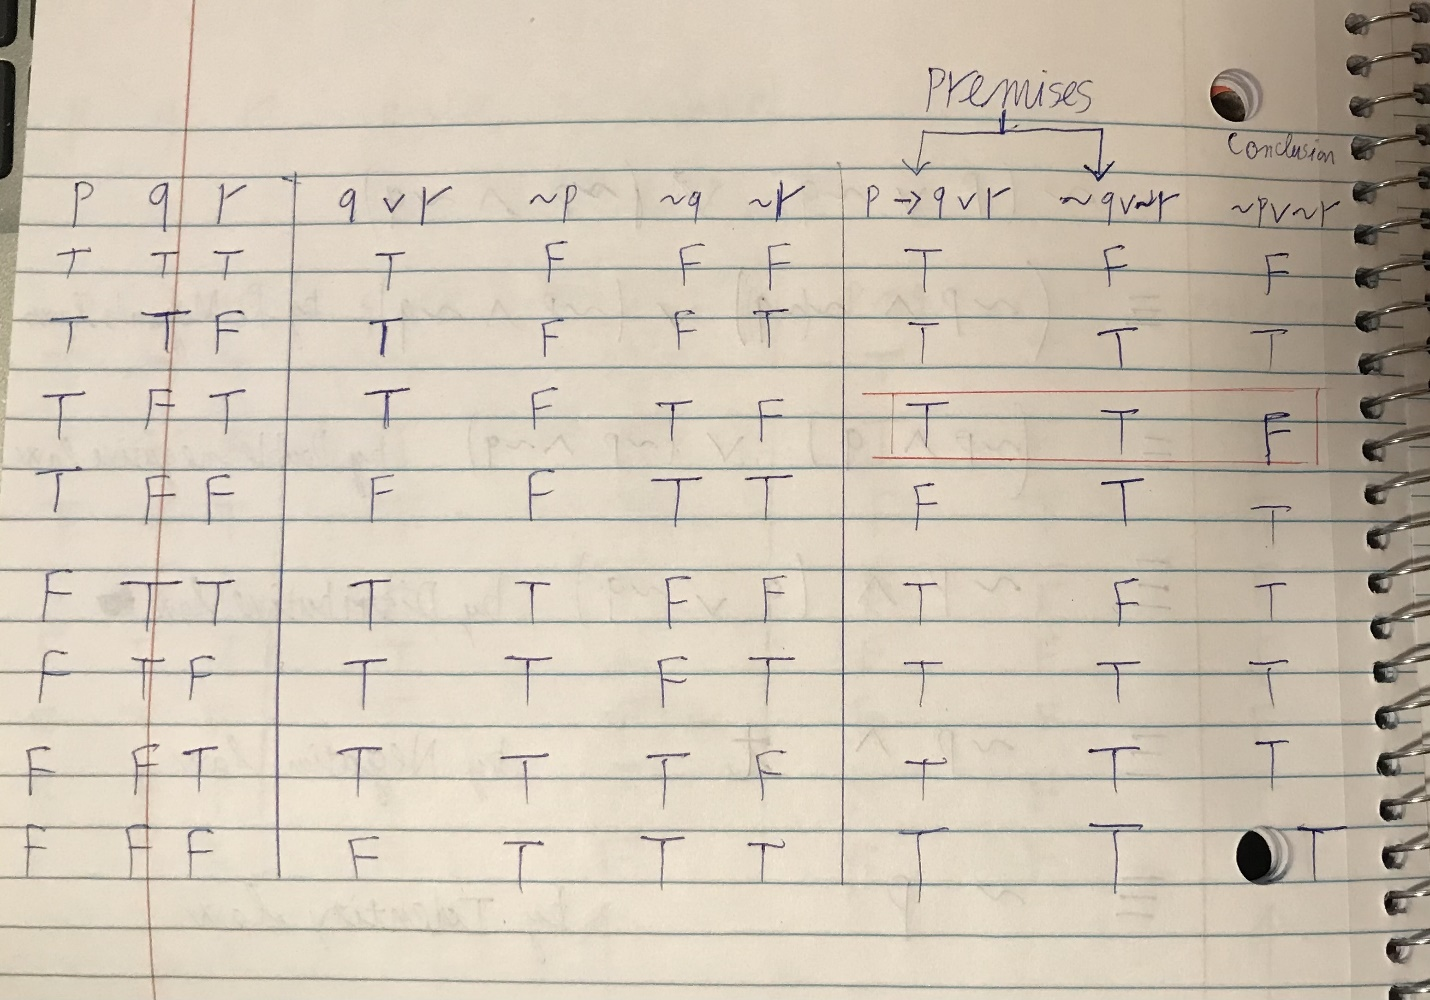 Premises
Conclusion
p q r q ∨ r ~p ~q ~r p → q ∨ r ~q∨~r ~p∨~r
T T T T F F F T F F
T T F T F F T T T T
T F T T F T F T T F
T F F F F T T F T T
F T T T T F F T F T
F T F T T F T T T T
F F T T T T F T T T
F F F F T T T T T T